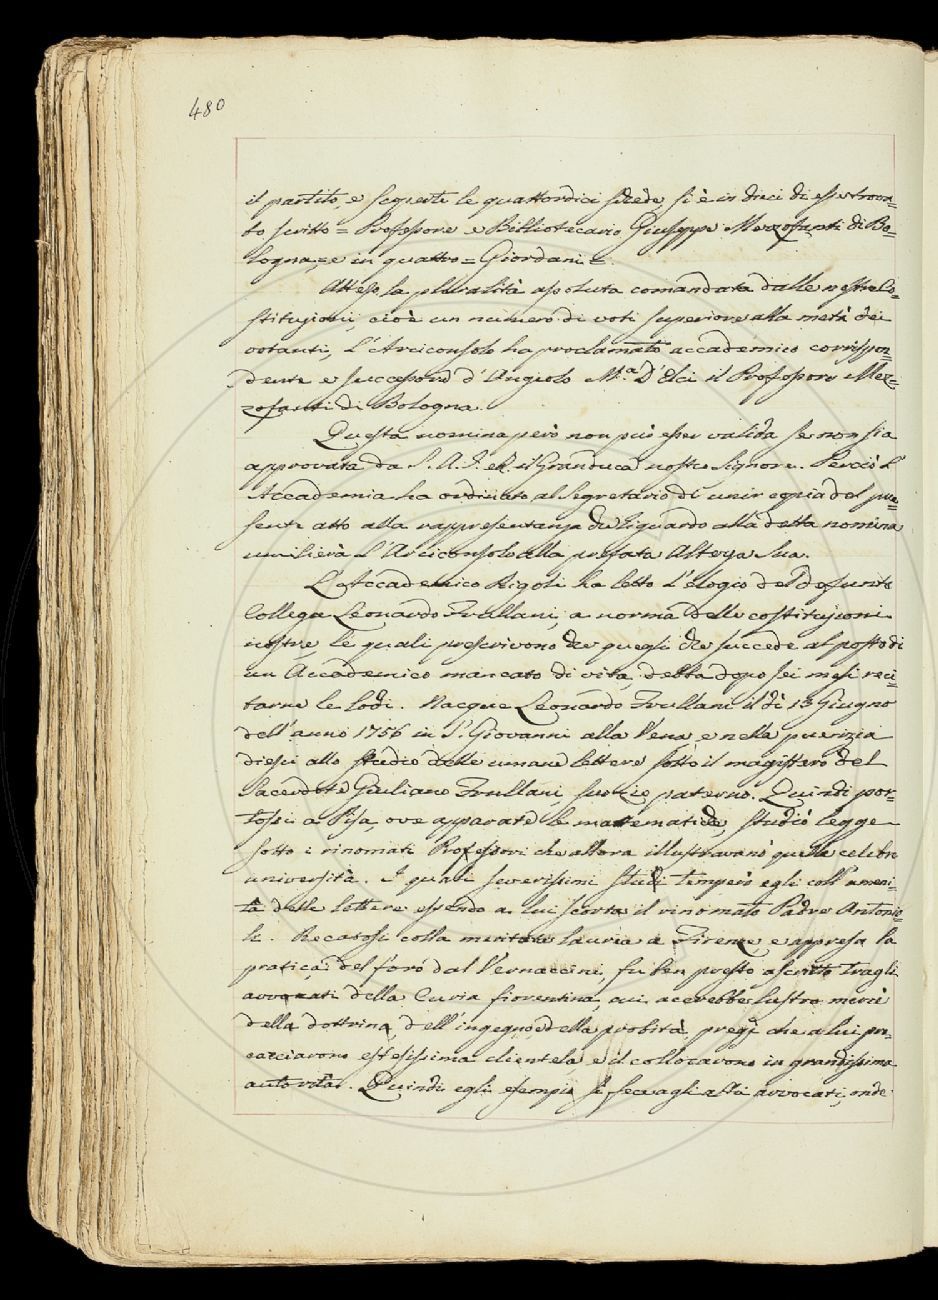 480
il partito, e scquerte le quattordici schede, si è in dieci di esse trova=
to scritto = Professore e Bibliotecario Giuseppe Mezzofanti di Bo=
logna, = e in quattro = Giordani =.
Attesa la pluralità assoluta comandata dalle nostre Co=
stituzioni, cioè un numero di voti superiore alla metà dei
votanti, L'Arciconsolo ha proclamato accademico corrispon=
dente e successore d'Angiolo M.ª D'Elci il Professore Mez=
zofanti di Bologna.
Questa nomina però non può esser valida se non sia
approvata da S. A. I. e R. il Granduca nostro Signore. Perciò l'
Accademia ha ordinato al Segretario di unir copia del pre=
sente atto alla rappresentanza che riguardo alla detta nomina
umilierà L'Arciconsolo alla prefata Altezza Sua.
L'Accademico Rigoli ha letto L'elogio del defunto
Collega Leonardo Frullani, a norma delle costituzioni
nostre, le quali prescrivono che quegli che succede al posto di
un Accademico mancato di vita, debba dopo sei mesi reci=
tarne le lodi. Nacque Leonardo Frullani il dì 13 Giugno
dell'anno 1756 in S. Giovanni alla Vena, e nella puerizia
diessi allo studio delle umane lettere sotto il magistero del
Sacerdote Giuliano Frullani, suo zio paterno. Quindi por=
tossi a Pisa, ove apparate le matematiche, studiò legge
sotto i rinomati Professori che allora illustravano quella celebre
università. I quali severissimi studi temperò egli coll'ameni=
tà delle lettere essendo a lui scorta il rinomato Padre Antonio=
li. Recatosi colla meritata laurea a Firenze, e appresa la
pratica del foro dal Vernaccini, fu ben presto ascritto tragli
avvocati della Curia fiorentina, cui accrebbe lustro mercè
della dottrina, dell'ingegno e della probità, pregi che a lui pro=
cacciarono estesissima clientela e il collocarono in grandissima
autorità. Quindi egli esempio si fece agli altri avvocati, onde